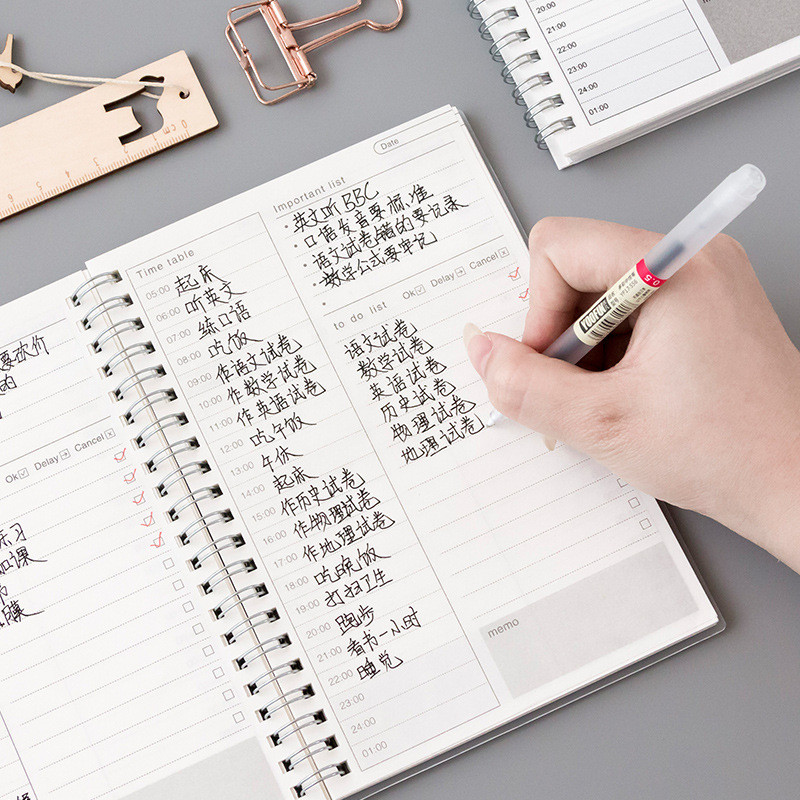 20:00
21:00
22:00
23:00
24:00
01:00
memo
0cm
Date
Important list
英文听BBC
口语发音要标准
语文试卷错的要记录
数学公式要牢记
Time table
05:00 起床
06:00 听英文
07:00 练口语
08:00 吃饭
09:00 作语文试卷
10:00 作数学试卷
11:00 作英语试卷
12:00 吃午饭
13:00 午休
14:00 起床
15:00 作历史试卷
16:00 作物理试卷
17:00 作地理试卷
18:00 吃晚饭
19:00 打扫卫生
20:00 跑步
21:00 看书一小时
22:00 睡觉
23:00
24:00
01:00
to do list Ok Delay Cancel
语文试卷
数学试卷
英语试卷
历史试卷
物理试卷
地理试卷
memo
0.5
要砍价
Ok Delay Cancel